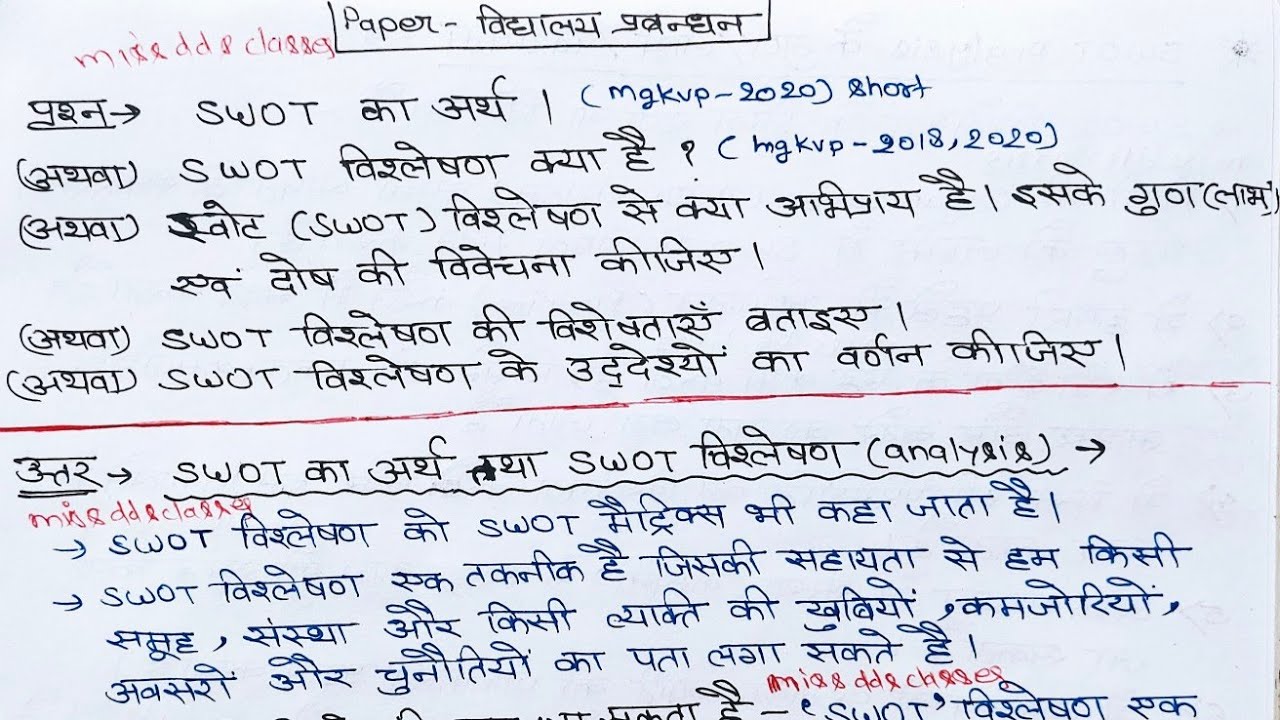 Paper - विद्यालय प्रबन्धन
miss dds classes
प्रश्न→ SWOT का अर्थ । (mgkvp-2020) short
(अथवा) SWOT विश्लेषण क्या है ? (mgkvp-2018,2020)
(अथवा) स्वोट (SWOT) विश्लेषण से क्या अभिप्राय है। इसके गुण(लाभ)
एवं दोष की विवेचना कीजिए।
(अथवा) SWOT विश्लेषण की विशेषताएँ बताइए।
(अथवा) SWOT विश्लेषण के उद्देश्यों का वर्णन कीजिए।
उत्तर→ SWOT का अर्थ तथा SWOT विश्लेषण (analysis) →
miss dds classes
→ SWOT विश्लेषण को SWOT मैट्रिक्स भी कहा जाता है।
→ SWOT विश्लेषण एक तकनीक है जिसकी सहायता से हम किसी
समूह, संस्था और किसी व्यक्ति की खुबियों, कमजोरियों,
अवसरों और चुनौतियों का पता लगा सकते है।
miss dds classes
सकता है - 'SWOT' विश्लेषण एक